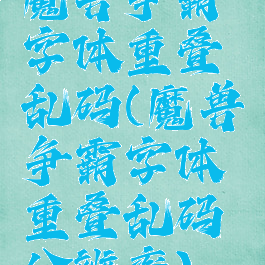 魔兽争霸
字体重叠
乱码(魔兽
争霸字体
重叠乱码
分辨率)